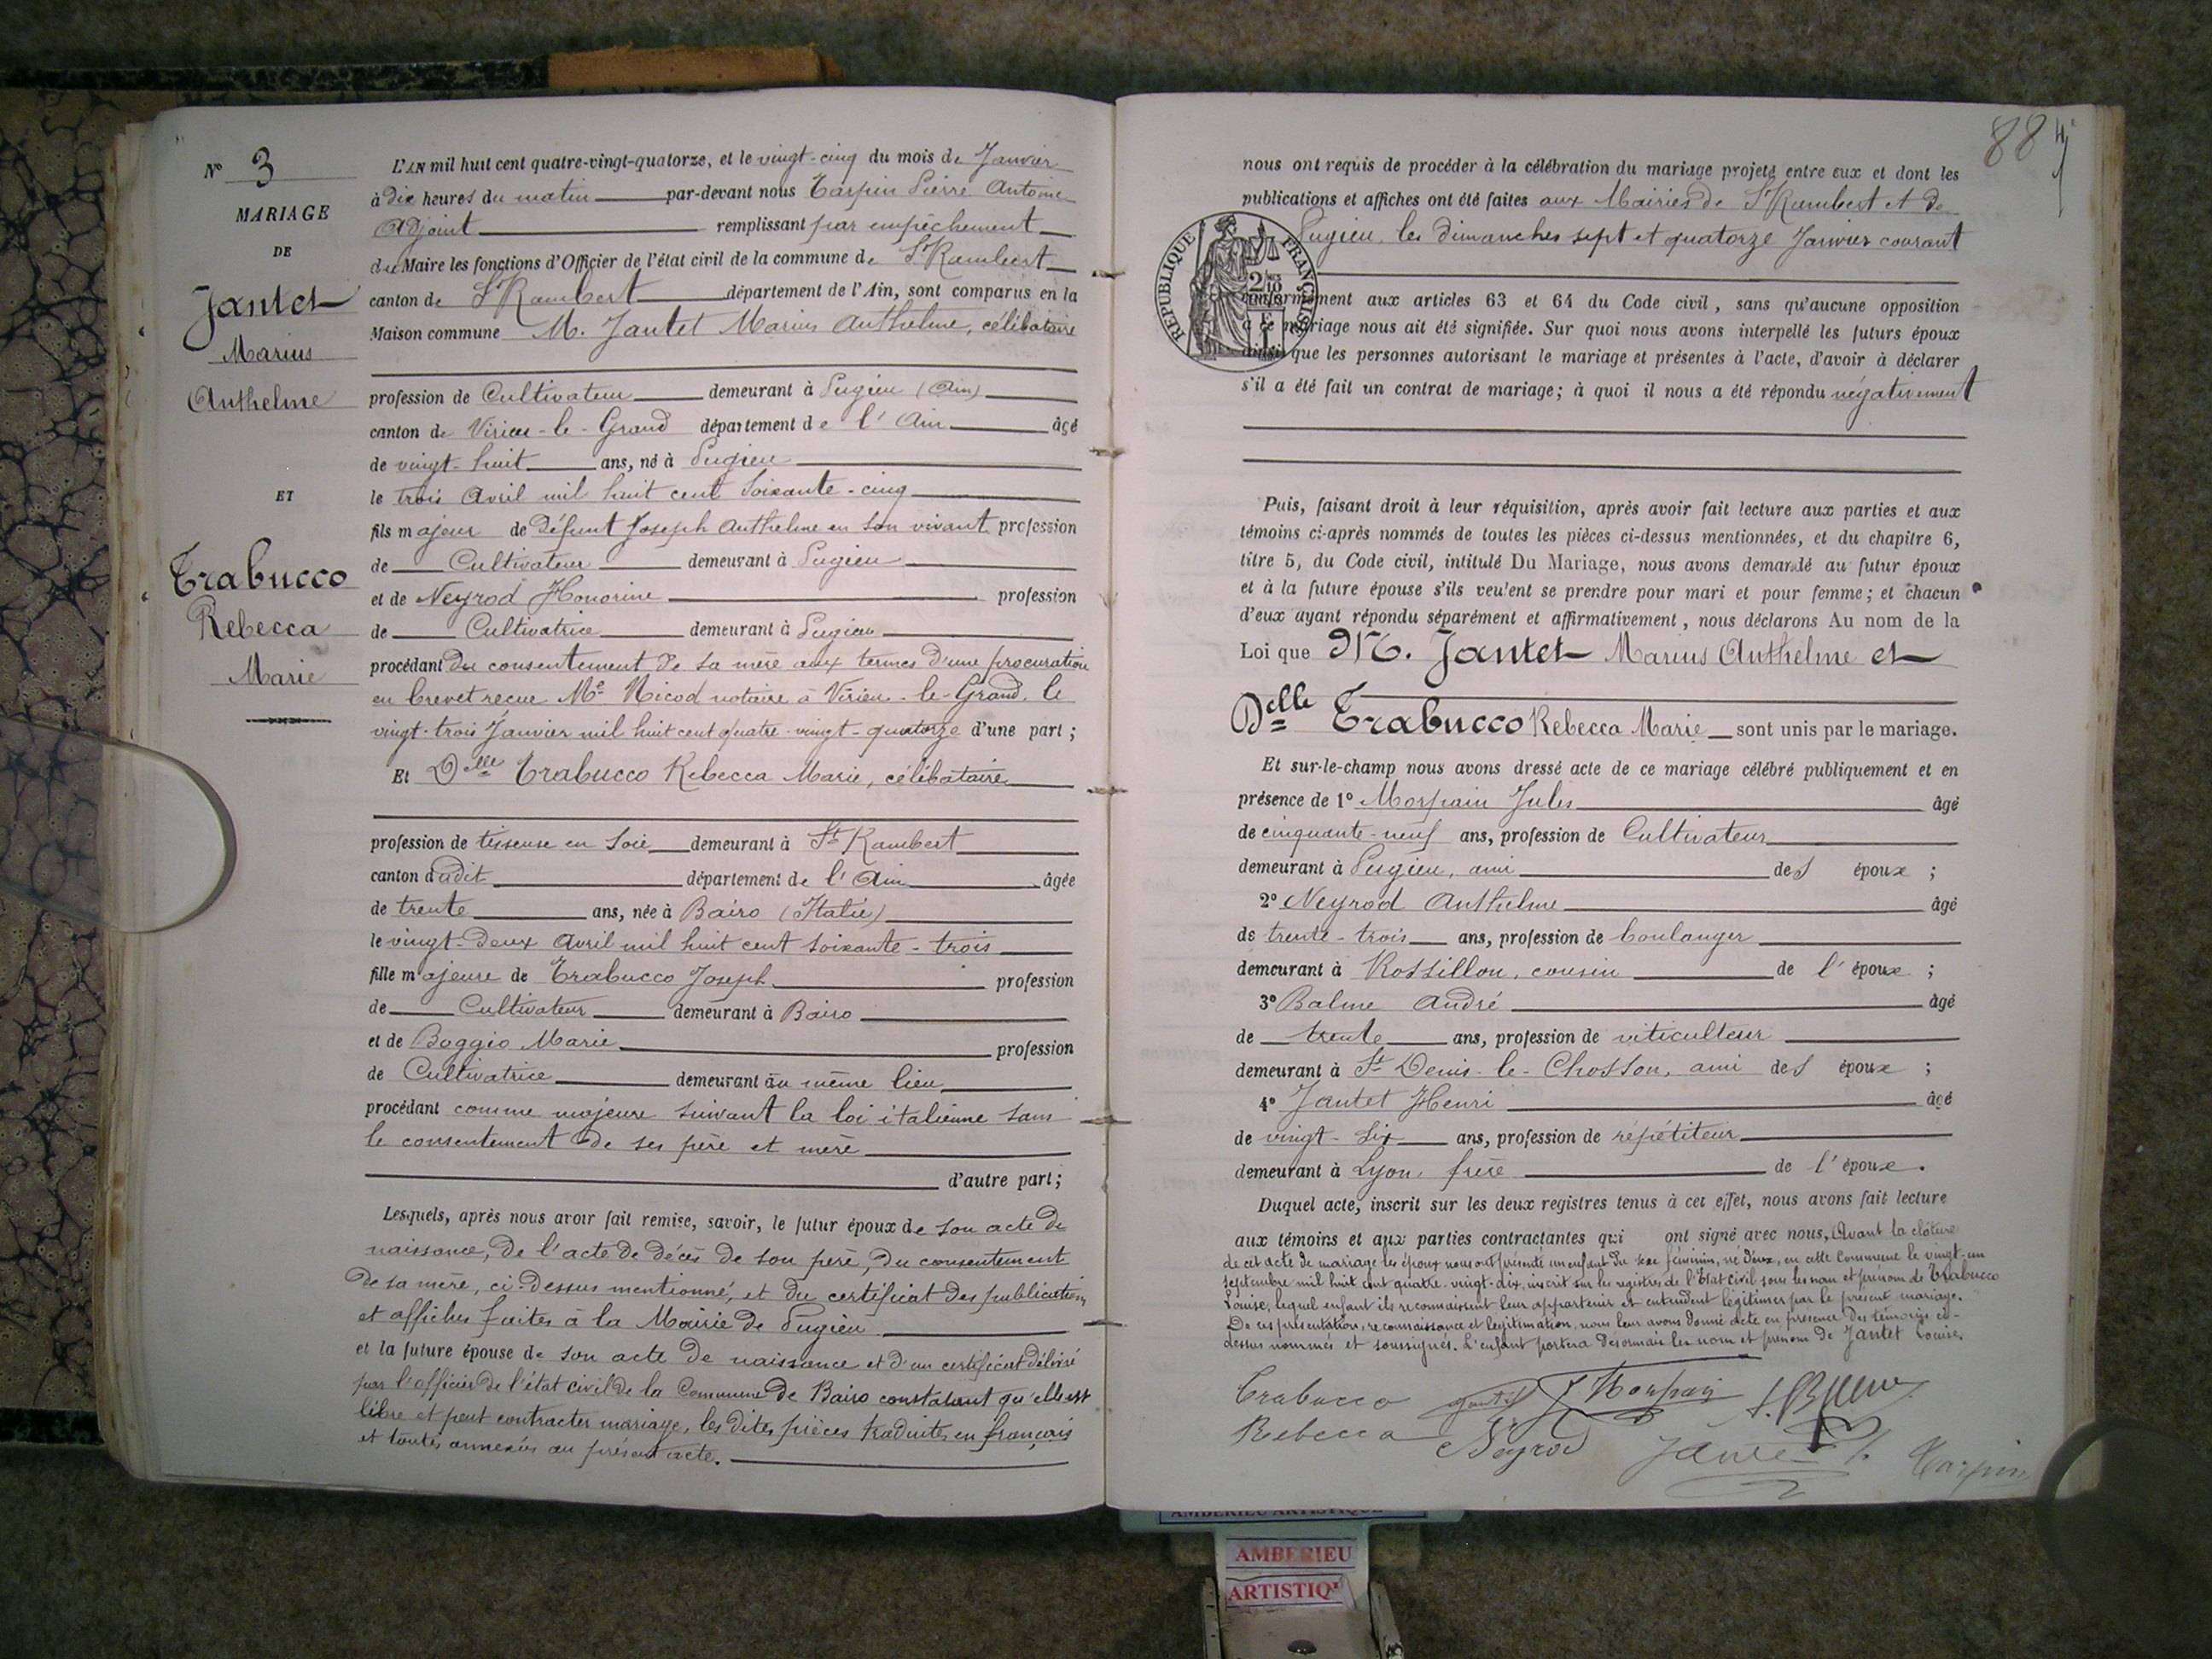 N° 3
MARIAGE
DE
Jantet
Marius
Anthelme
ET
Trabucco
Rebecca
Marie
L'AN mil huit cent quatre-vingt-quatorze, et le vingt-cinq du mois de Janvier
à dix heures du matin par-devant nous Tarpin Pierre Antoine
Adjoint remplissant par empêchement
du Maire les fonctions d'Officier de l'état civil de la commune de St Rambert
canton de St Rambert département de l'Ain, sont comparus en la
Maison commune M. Jantet Marius Anthelme, célibataire
profession de Cultivateur demeurant à Pugieu (Ain)
canton de Virieu-le-Grand département de l'Ain âgé
de vingt-huit ans, né à Pugieu
le trois Avril mil huit cent soixante-cinq
fils majeur de défunt Joseph Anthelme en son vivant profession
de Cultivateur demeurant à Pugieu
et de Neyrod Honorine profession
de Cultivatrice demeurant à Pugieu
procédant du consentement de sa mère aux termes d'une procuration
en brevet reçue Me Nicod notaire à Virieu-le-Grand, le
vingt-trois Janvier mil huit cent quatre-vingt-quatorze d'une part ;
Et Delle Trabucco Rebecca Marie, célibataire
profession de tisseuse en soie demeurant à St Rambert
canton dudit département de l'Ain âgée
de trente ans, née à Bairo (Italie)
le vingt-deux Avril mil huit cent soixante-trois
fille majeure de Trabucco Joseph profession
de Cultivateur demeurant à Bairo
et de Boggio Marie profession
de Cultivatrice demeurant au même lieu
procédant comme majeure suivant la loi italienne sans
le consentement de ses père et mère
d'autre part ;
Lesquels, après nous avoir fait remise, savoir, le futur époux de son acte de
naissance, de l'acte de décès de son père, du consentement
de sa mère, ci-dessus mentionné, et du certificat des publications
et affiches faites à la Mairie de Pugieu
et la future épouse de son acte de naissance et d'un certificat délivré
par l'officier de l'état civil de la Commune de Bairo constatant qu'elle est
libre et peut contracter mariage, les dites pièces traduites en français
et toutes annexées au présent acte.
88
nous ont requis de procéder à la célébration du mariage projeté entre eux et dont les
publications et affiches ont été faites aux Mairies de St Rambert et de
Pugieu, les dimanches sept et quatorze Janvier courant
RÉPUBLIQUE FRANÇAISE
conformément aux articles 63 et 64 du Code civil, sans qu'aucune opposition
à ce mariage nous ait été signifiée. Sur quoi nous avons interpellé les futurs époux
ainsi que les personnes autorisant le mariage et présentes à l'acte, d'avoir à déclarer
s'il a été fait un contrat de mariage ; à quoi il nous a été répondu négativement
Puis, faisant droit à leur réquisition, après avoir fait lecture aux parties et aux
témoins ci-après nommés de toutes les pièces ci-dessus mentionnées, et du chapitre 6,
titre 5, du Code civil, intitulé Du Mariage, nous avons demandé au futur époux
et à la future épouse s'ils veulent se prendre pour mari et pour femme ; et chacun
d'eux ayant répondu séparément et affirmativement, nous déclarons Au nom de la
Loi que M. Jantet Marius Anthelme et
Delle Trabucco Rebecca Marie sont unis par le mariage.
Et sur-le-champ nous avons dressé acte de ce mariage célébré publiquement et en
présence de 1° Morpain Jules âgé
de cinquante-neuf ans, profession de Cultivateur
demeurant à Pugieu, ami des époux ;
2° Neyrod Anthelme âgé
de trente-trois ans, profession de boulanger
demeurant à Rossillon, cousin de l'époux ;
3° Balme André âgé
de trente ans, profession de viticulteur
demeurant à St Denis-le-Chosson, ami des époux ;
4° Jantet Henri âgé
de vingt-six ans, profession de répétiteur
demeurant à Lyon, frère de l'époux.
Duquel acte, inscrit sur les deux registres tenus à cet effet, nous avons fait lecture
aux témoins et aux parties contractantes qui ont signé avec nous, Avant la clôture
de cet acte de mariage les époux nous ont présenté un enfant du sexe féminin, né d'eux, en cette Commune le vingt-un
septembre mil huit cent quatre-vingt-dix, inscrit sur les registres de l'Etat Civil sous les nom et prénom de Trabucco
Louise, lequel enfant ils reconnaissent leur appartenir et entendent légitimer par le présent mariage.
De ces présentation, reconnaissance et légitimation, nous leur avons donné acte en présence des témoins ci-
dessus nommés et soussignés. L'enfant portera désormais les nom et prénom de Jantet Louise.
Trabucco
Rebecca
Jantet
J Morpain
A. Balme
Neyrod
Jantet h.
Tarpin
AMBERIEU ARTISTIQUE
AMBERIEU
ARTISTIQ